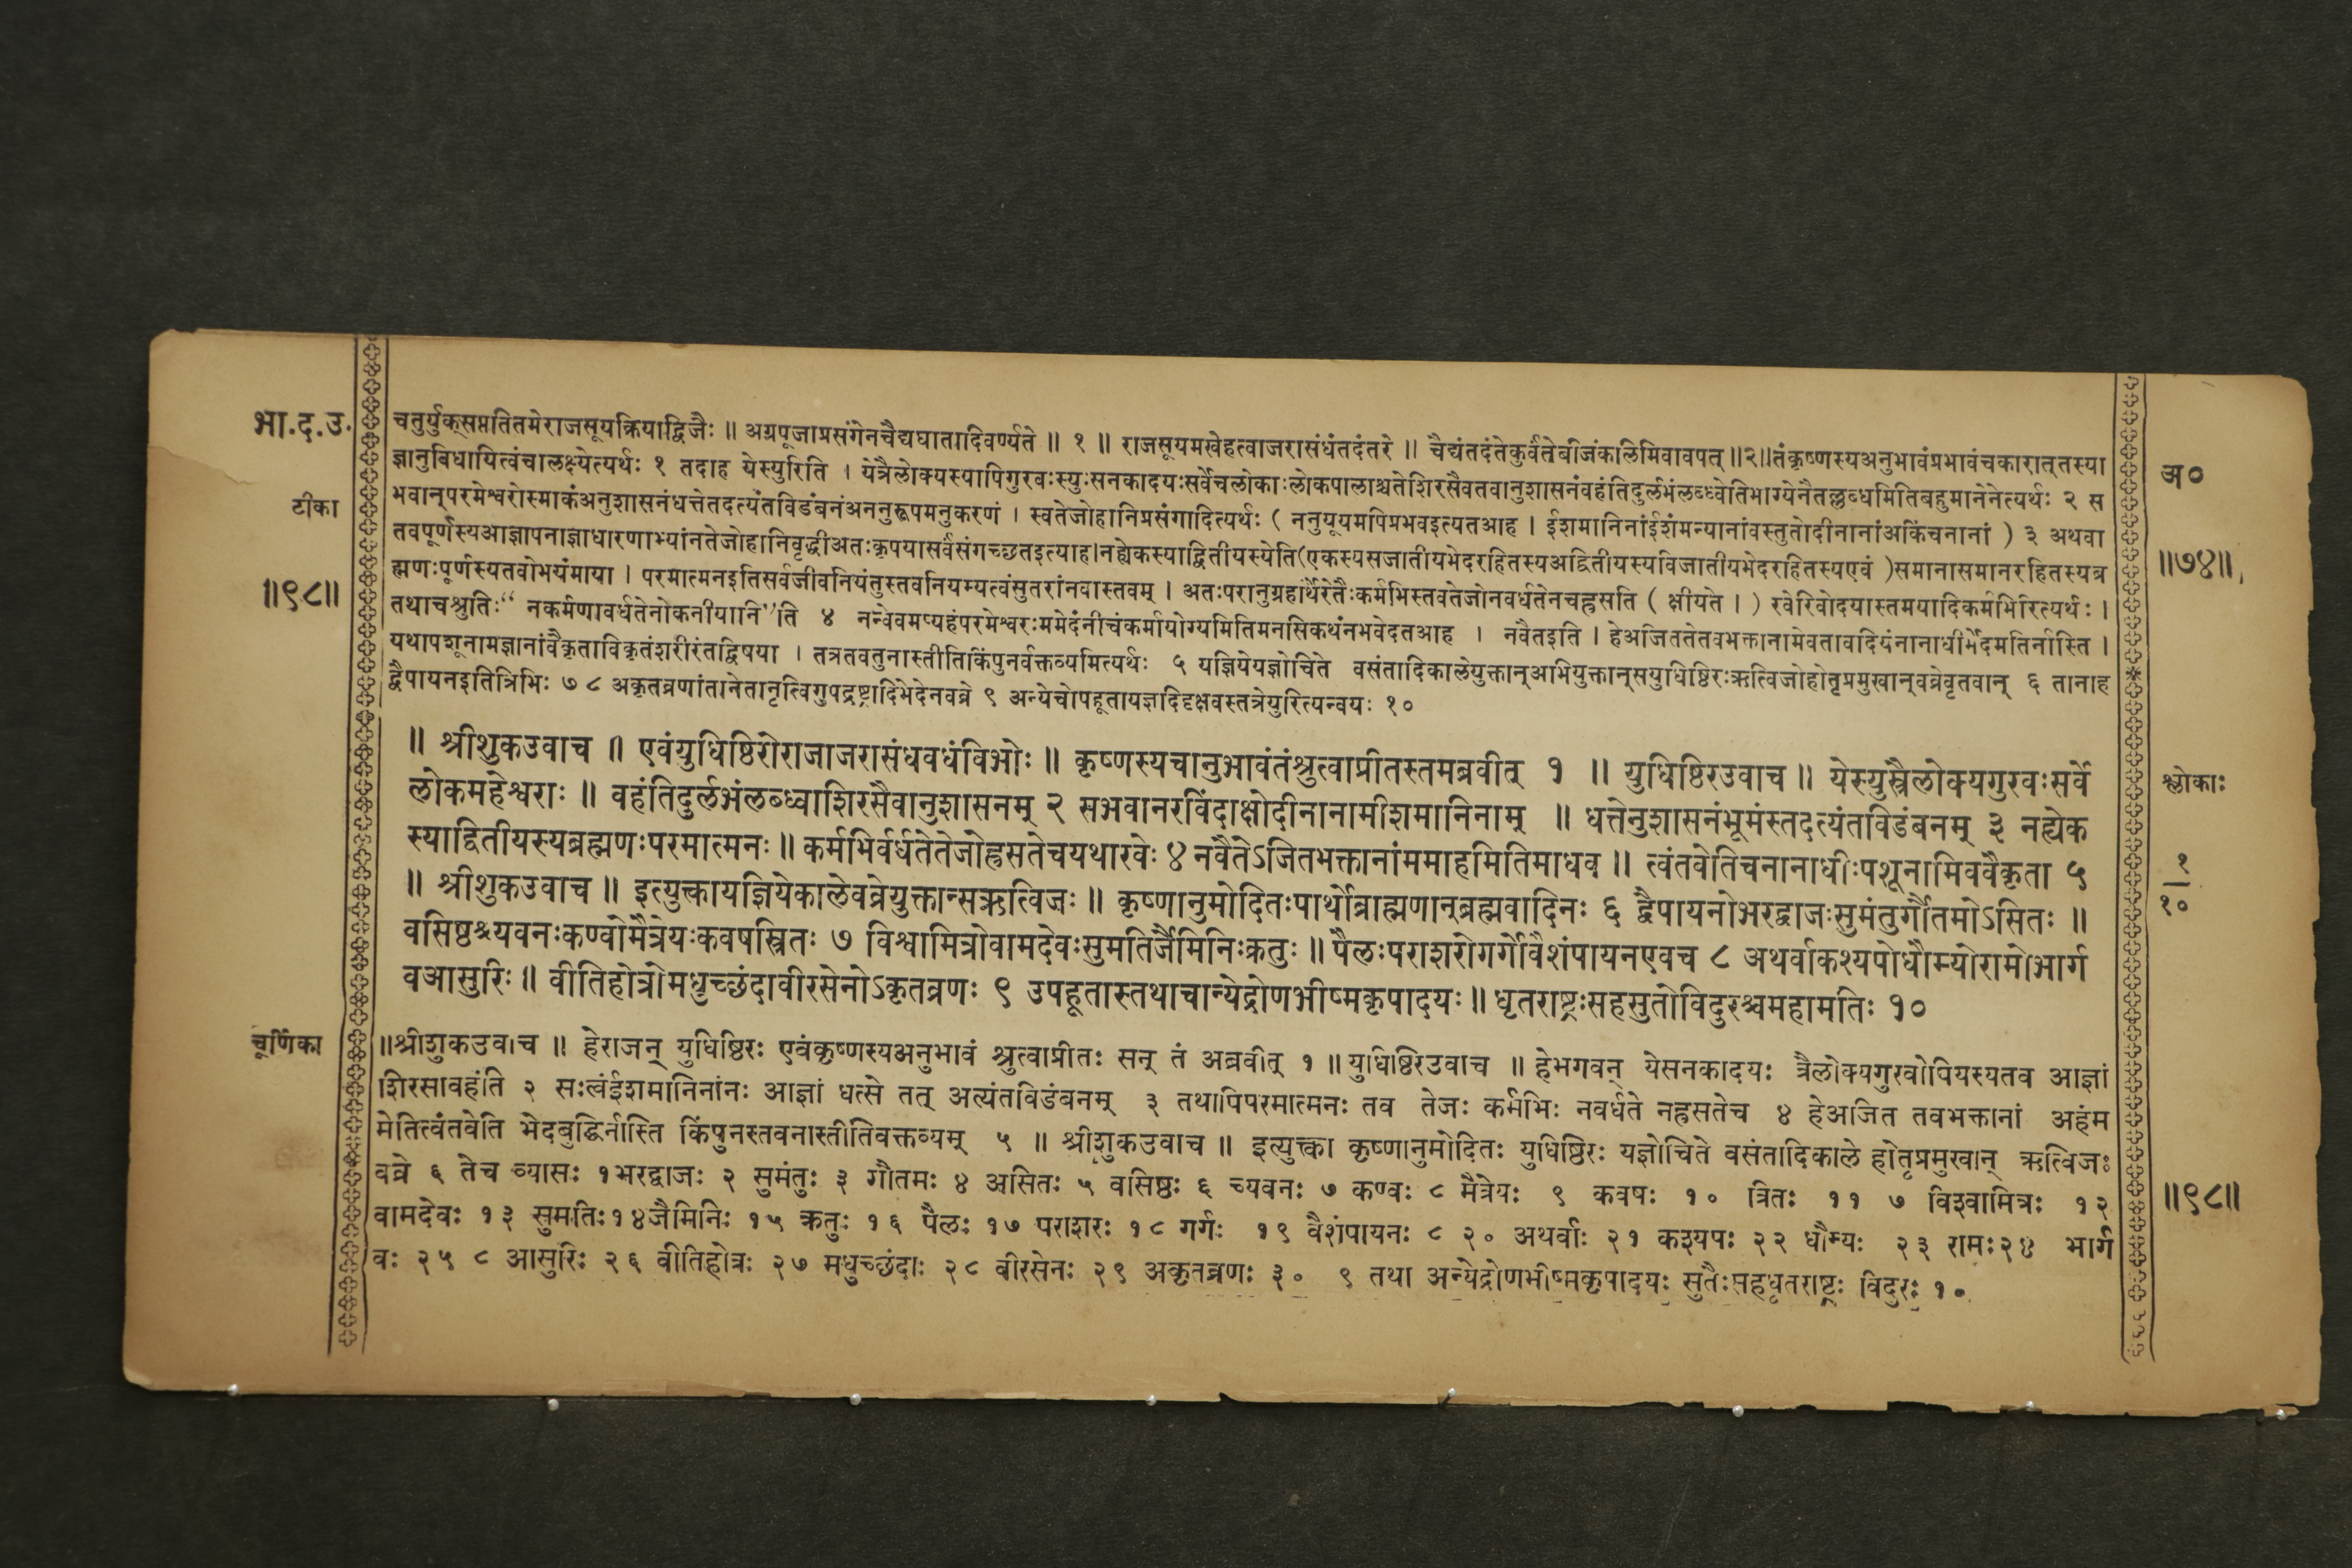 भा.द.उ.
चतुर्युक्सप्ततितमेराजसूयक्रियाद्विजैः ॥ अग्रपूजाप्रसंगेनचैद्यघातादिवर्ण्यते ॥ १ ॥ राजसूयमखेहत्वाजरासंधंतदंतरे ॥ चैद्यंतदंतेकुर्वंतेबीजंकलिमिवावपत् ॥२॥तंकृष्णस्यअनुभावंप्रभावंचकारात्तस्या
ज्ञानुविधायित्वंचालक्ष्येत्यर्थः १ तदाह येस्युरिति । येत्रैलोक्यस्यापिगुरवःस्युःसनकादयःसर्वेचलोकाःलोकपालाश्चतेशिरसैवतवानुशासनंवहंतिदुर्लभंलब्ध्वेतिभाग्येनैतल्लब्धमितिबहुमानेनेत्यर्थः २ स
भवान्परमेश्वरोस्माकंअनुशासनंधत्तेतदत्यंतविडंबनंअननुरूपमनुकरणं । स्वतेजोहानिप्रसंगादित्यर्थः ( ननुयूयमपिप्रभवइत्यतआह । ईशमानिनांईशंमन्यानांवस्तुतोदीनानांअकिंचनानां ) ३ अथवा
तवपूर्णस्यआज्ञापनाज्ञाधारणाभ्यांनतेजोहानिवृद्धीअतःकृपयासर्वंसंगच्छतइत्याह।नह्येकस्याद्वितीयस्येति(एकस्यसजातीयभेदरहितस्यअद्वितीयस्यविजातीयभेदरहितस्यएवं )समानासमानरहितस्यब्र
ह्मणःपूर्णस्यतवोभयंमाया । परमात्मनइतिसर्वजीवनियंतुस्तवनियम्यत्वंसुतरांनवास्तवम् । अतःपरानुग्रहार्थैरेतैःकर्मभिस्तवतेजोनवर्धतेनचह्रसति ( क्षीयते । ) रवेरिवोदयास्तमयादिकर्मभिरित्यर्थः ।
तथाचश्रुतिः“ नकर्मणावर्धतेनोकनीयानि”ति ४ नन्वेवमप्यहंपरमेश्वरःममेदंनीचंकर्मायोग्यमितिमनसिकथंनभवेदतआह । नवैतइति । हेअजिततेतवभक्तानामेवतावदियंनानाधीर्भेदमतिर्नास्ति ।
यथापशूनामज्ञानांवैकृताविकृतंशरीरंतद्विषया । तत्रतवतुनास्तीतिकिंपुनर्वक्तव्यमित्यर्थः ५ यज्ञियेयज्ञोचिते वसंतादिकालेयुक्तान्अभियुक्तान्सयुधिष्ठिरःऋत्विजोहोतृप्रमुखान्वव्रेवृतवान् ६ तानाह
द्वैपायनइतित्रिभिः ७ ८ अकृतव्रणांतानेतानृत्विगुपद्रष्ट्रादिभेदेनवव्रे ९ अन्येचोपहूतायज्ञदिदृक्षवस्तत्रेयुरित्यन्वयः १०
टीका
॥९८॥
अ०
॥७४॥
॥ श्रीशुकउवाच ॥ एवंयुधिष्ठिरोराजाजरासंधवधंविभोः ॥ कृष्णस्यचानुभावंतंश्रुत्वाप्रीतस्तमब्रवीत् १ ॥ युधिष्ठिरउवाच ॥ येस्युस्त्रैलोक्यगुरवःसर्वे
लोकमहेश्वराः ॥ वहंतिदुर्लभंलब्ध्वाशिरसैवानुशासनम् २ सभवानरविंदाक्षोदीनानामीशमानिनाम् ॥ धत्तेनुशासनंभूमंस्तदत्यंतविडंबनम् ३ नह्येक
स्याद्वितीयस्यब्रह्मणःपरमात्मनः ॥ कर्मभिर्वर्धतेतेजोह्रसतेचयथारवेः ४ नवैतेऽजितभक्तानांममाहमितिमाधव ॥ त्वंतवेतिचनानाधीःपशूनामिववैकृता ५
॥ श्रीशुकउवाच ॥ इत्युक्त्वायज्ञियेकालेवव्रेयुक्तान्सऋत्विजः ॥ कृष्णानुमोदितःपार्थोब्राह्मणान्ब्रह्मवादिनः ६ द्वैपायनोभरद्वाजःसुमंतुर्गौतमोऽसितः ॥
वसिष्ठश्च्यवनःकण्वोमैत्रेयःकवषस्त्रितः ७ विश्वामित्रोवामदेवःसुमतिर्जैमिनिःक्रतुः ॥ पैलःपराशरोगर्गोवैशंपायनएवच ८ अथर्वाकश्यपोधौम्योरामोभार्ग
वआसुरिः ॥ वीतिहोत्रोमधुच्छंदावीरसेनोऽकृतव्रणः ९ उपहूतास्तथाचान्येद्रोणभीष्मकृपादयः ॥ धृतराष्ट्रःसहसुतोविदुरश्चमहामतिः १०
श्लोकाः
१
१०
चूर्णिका
॥श्रीशुकउवाच ॥ हेराजन् युधिष्ठिरः एवंकृष्णस्यअनुभावं श्रुत्वाप्रीतः सन् तं अब्रवीत् १ ॥ युधिष्ठिरउवाच ॥ हेभगवन् येसनकादयः त्रैलोक्यगुरवोपियस्यतव आज्ञां
शिरसावहंति २ सःत्वंईशमानिनांनः आज्ञां धत्से तत् अत्यंतविडंबनम् ३ तथापिपरमात्मनः तव तेजः कर्मभिः नवर्धते नह्रसतेच ४ हेअजित तवभक्तानां अहंम
मेतित्वंतवेति भेदबुद्धिर्नास्ति किंपुनस्तवनास्तीतिवक्तव्यम् ५ ॥ श्रीशुकउवाच ॥ इत्युक्त्वा कृष्णानुमोदितः युधिष्ठिरः यज्ञोचिते वसंतादिकाले होतृप्रमुखान् ऋत्विजः
वव्रे ६ तेच व्यासः १भरद्वाजः २ सुमंतुः ३ गौतमः ४ असितः ५ वसिष्ठः ६ च्यवनः ७ कण्वः ८ मैत्रेयः ९ कवषः १० त्रितः ११ ७ विश्वामित्रः १२
वामदेवः १३ सुमतिः१४जैमिनिः १५ क्रतुः १६ पैलः १७ पराशरः १८ गर्गः १९ वैशंपायनः ८ २० अथर्वाः २१ कश्यपः २२ धौम्यः २३ रामः२४ भार्ग
वः २५ ८ आसुरिः २६ वीतिहोत्रः २७ मधुच्छंदाः २८ वीरसेनः २९ अकृतव्रणः ३० ९ तथा अन्येद्रोणभीष्मकृपादयः सुतैःसहधृतराष्ट्रः विदुरः १०
॥९८॥